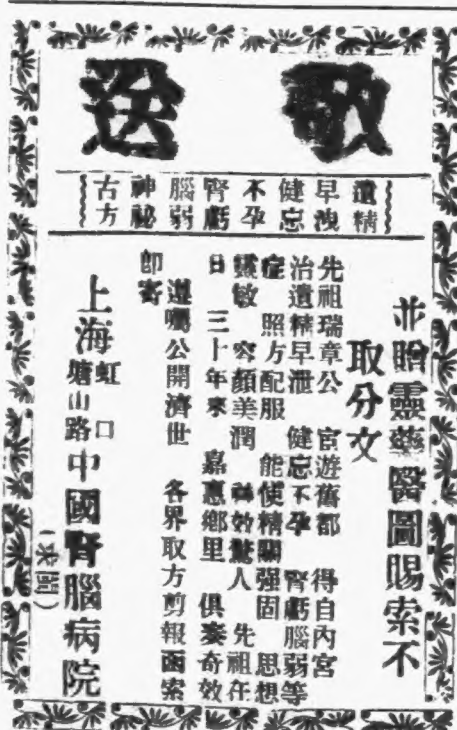 敬送
遺精
早洩
健忘
不孕
腎虧
腦弱
神祕
古方
並贈靈藥醫圖賜索不
取分文
先祖瑞章公 官遊舊都 得自內宮
治遺精早泄 健忘不孕 腎虧腦弱等
症 照方配服 能使精關强固 思想
靈敏 容顏美潤 神效驚人 先祖在
日 三十年來 嘉惠鄉里 俱奏奇效
遺囑公開濟世 各界取方剪報函索
即寄
上海虹口
塘山路中國腎腦病院